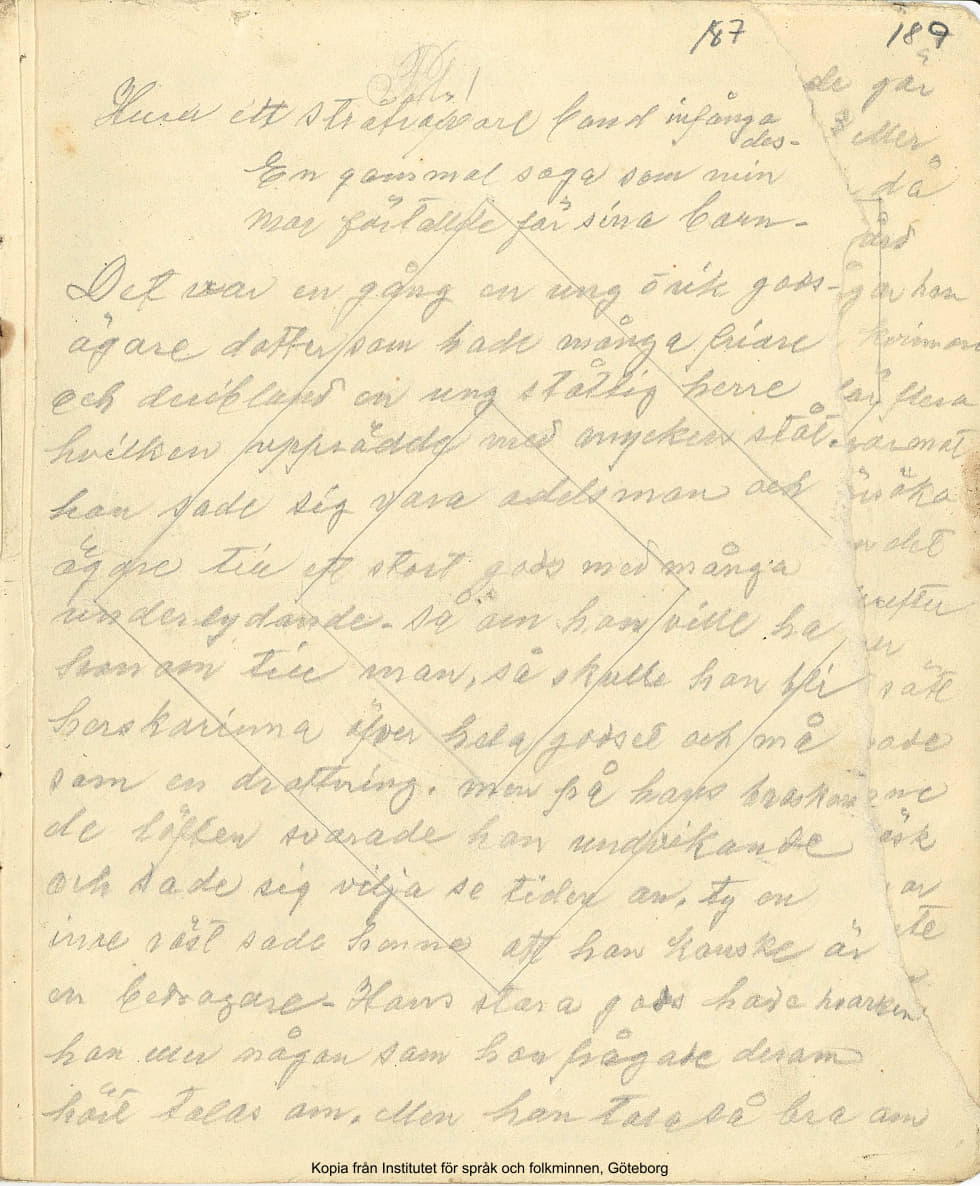 187
189
Huru ett stråtrövare band infånga
des-
En gammal saga som min
mor förtallde för sina barn-
Det var en gång en ung o rik gods-
ägare dotter som hade många friare
och deribland en ung ståttlig herre
hvilken uppträdde med mycken ståt.
han sade sig vara adelsman och
ägare till ett stort gods med många
underlydande- så om hon ville ha
honom till man, så skulle hon bli
herskarinna öfver hela godset och må
som en drottning. men på hans braskan
de löften svarade hon undvikande
och sade sig vilja se tiden an, ty en
inre röst sade henne att han kanske är
en bedragare- Hans stora gods hade hvarken
hon eller någon som hon frågade derom
hört talas om. Men han tala så bra om
de går
eller
då
går hon
kvinnan
flera
det
efter
sätt
Kopia från Institutet för språk och folkminnen, Göteborg